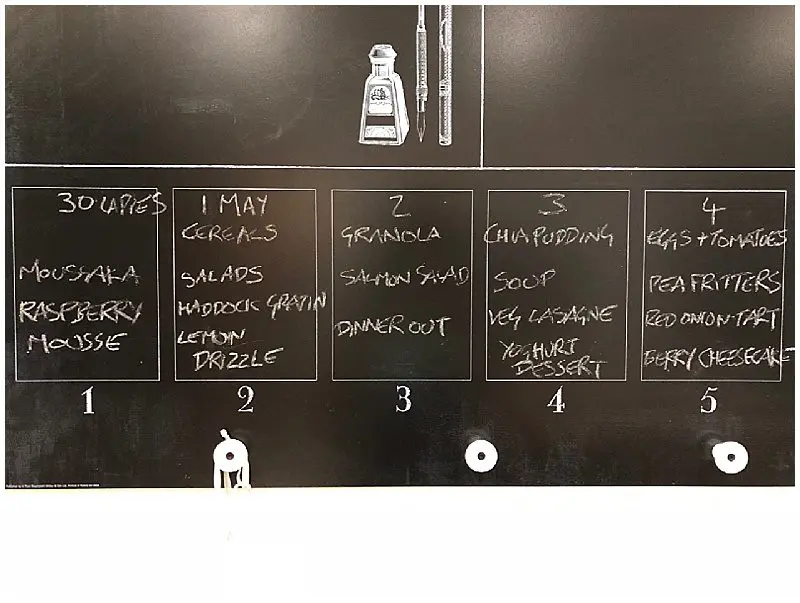 30 LADIES
MOUSSAKA
RASPBERRY
MOUSSE
1
1 MAY
CEREALS
SALADS
HADDOCK GRATIN
LEMON
DRIZZLE
2
2
GRANOLA
SALMON SALAD
DINNER OUT
3
3
CHIA PUDDING
SOUP
VEG LASAGNE
YOGHURT
DESSERT
4
4
EGGS + TOMATOES
PEA FRITTERS
RED ONION TART
BERRY CHEESECAKE
5